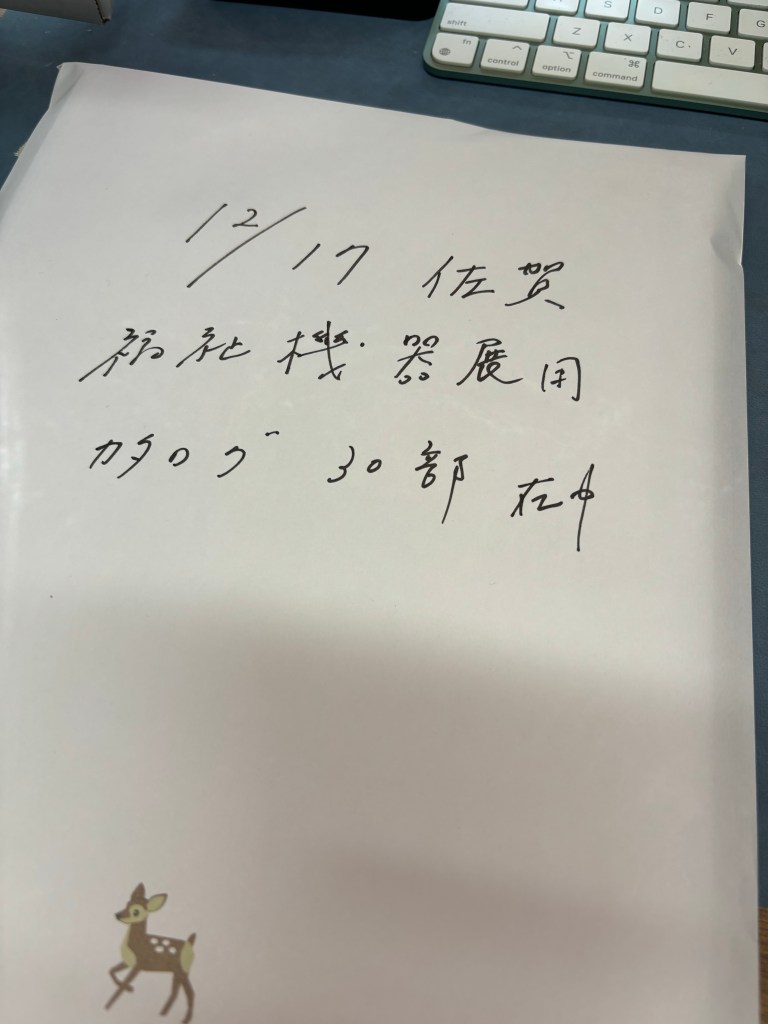 S D F G
shift Z X C V
fn control option ⌘ command
12/17 佐賀
福祉機器展用
カタログ 30部 在中